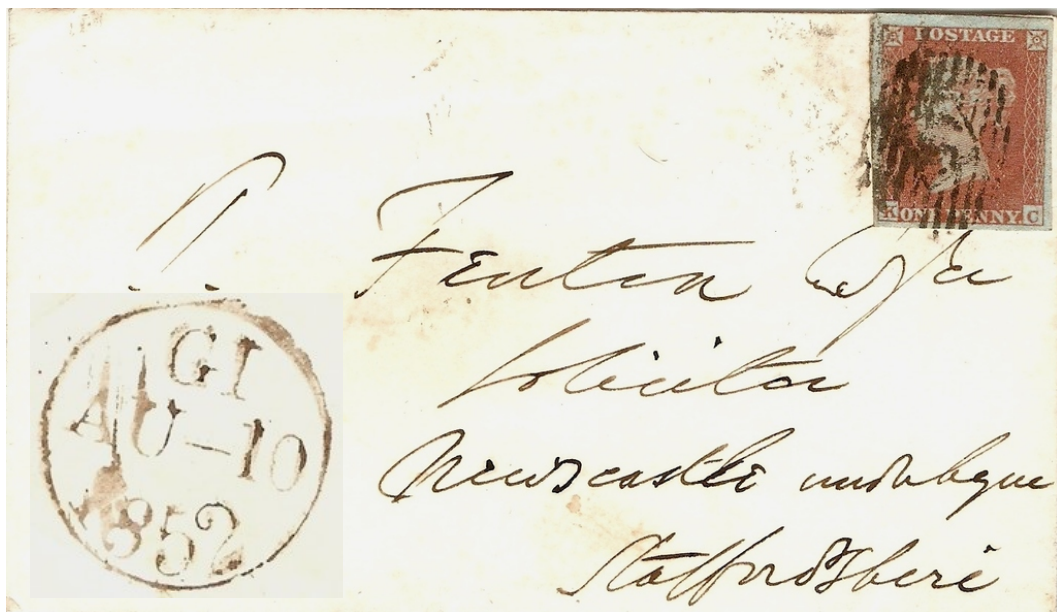 POSTAGE
K ONE PENNY. C
Fenton Esqre
Solicitor
Newcastle underlyne
Staffordshire
GI
AU-10
1852